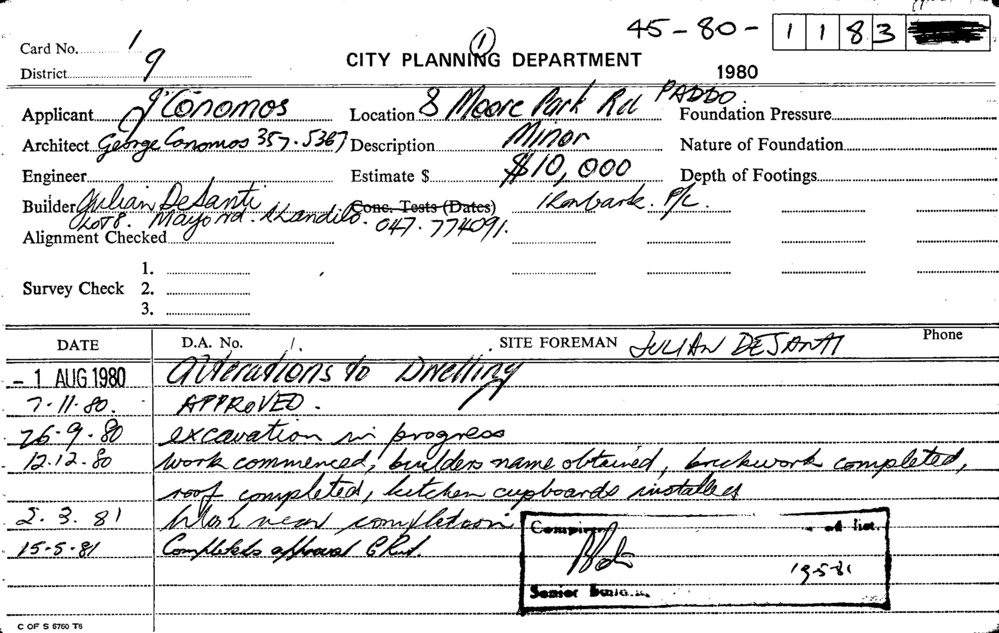 45-80-1183
Card No. 1
CITY PLANNING DEPARTMENT
1
District 9
1980
Applicant J Conomos Location 8 Moore Park Rd PADDO Foundation Pressure
Architect George Conomos 357.5367 Description Minor Nature of Foundation
Engineer Estimate $ $10,000 Depth of Footings
Builder Julian DeSanti Conc. Tests (Dates) P/L.
Lot 8. Mayo rd. 047.774091.
Alignment Checked
Survey Check 1.
2.
3.
DATE D.A. No. 1. SITE FOREMAN JULIAN DESANTI Phone
- 1 AUG 1980 Alterations to Dwelling
7.11.80. APPROVED.
26.9.80 excavation in progress
12.12.80 work commenced, builders name obtained, brickwork completed,
roof completed, kitchen cupboards installed
2.3.81 Work near completion
15-5-81 Completed approval
19-5-81
Senior
C OF S 6760 T6